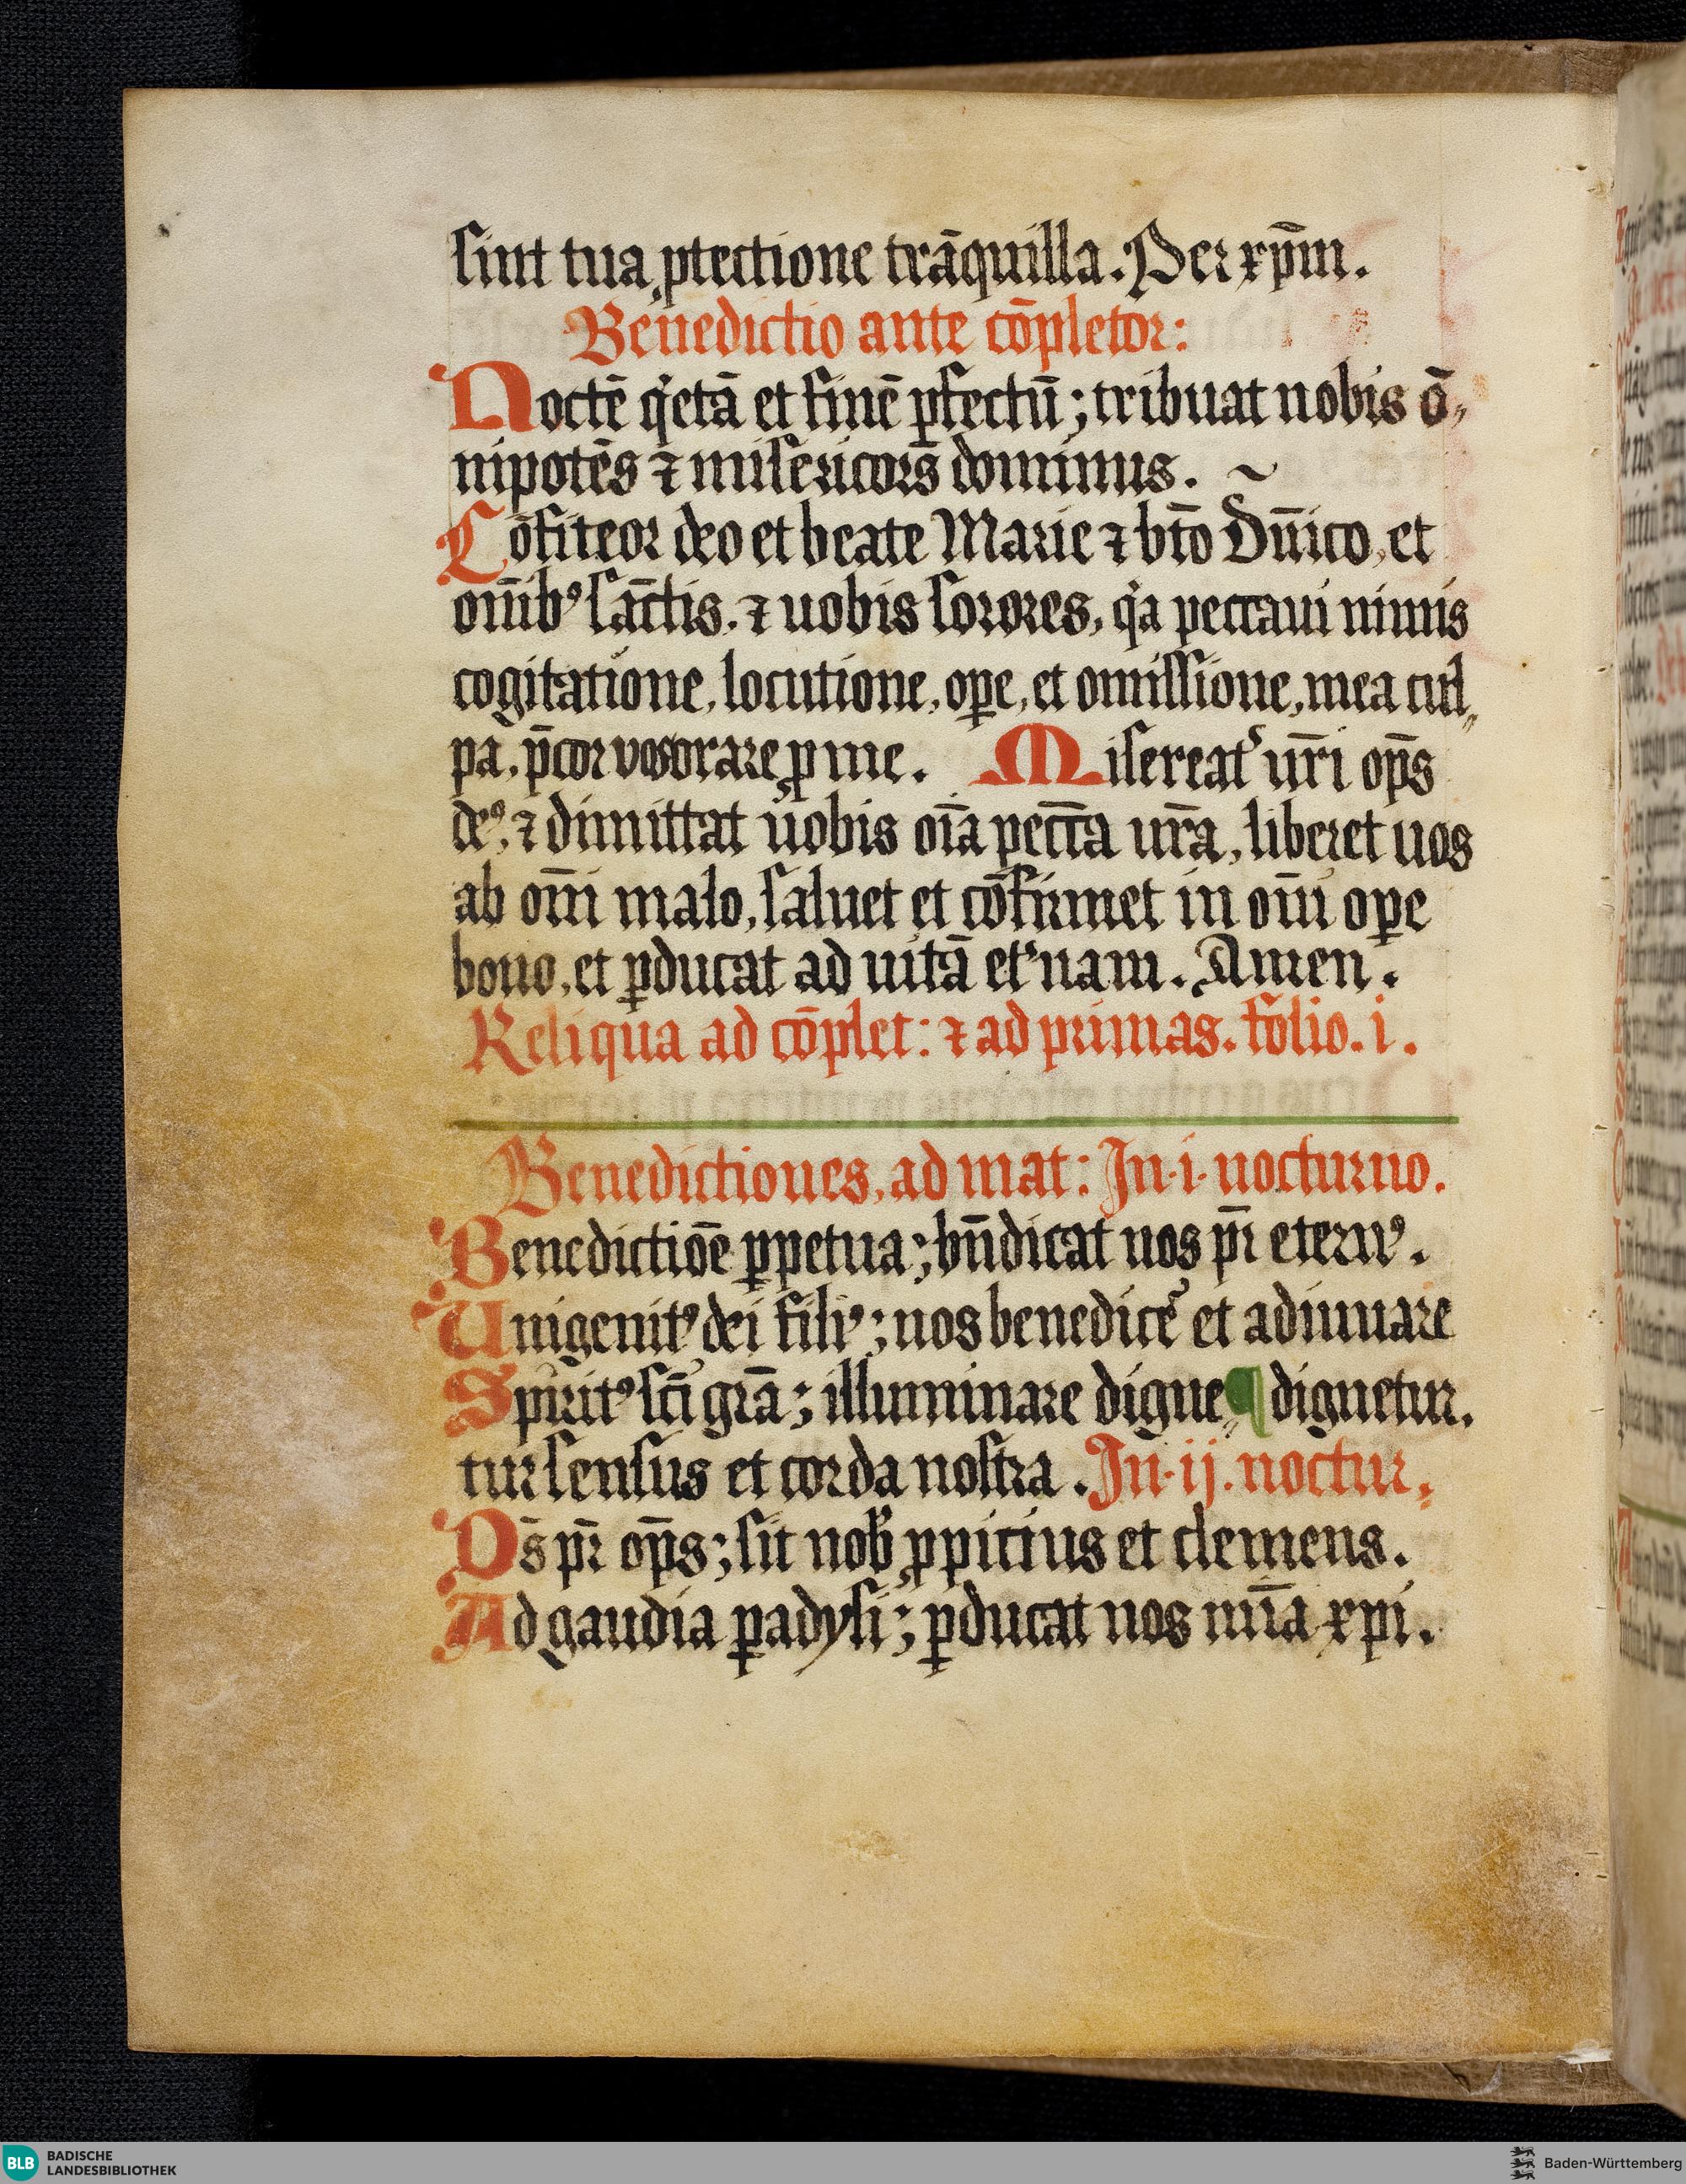 sint tua ꝓtectione trāquilla. Per xp̄m.
Benedictio ante cōpletor:
Noctē qͥetā et finē ꝑfectū; tribuat nobis ō⸗
nipotēs ⁊ misericors̄ dominus. ~
Cōfiteor deo et beate Marie ⁊ bt̄o Dn̄ico, et
om̄ibꝰ sān̄ctis, ⁊ uobis sorores, qͥa peccaui nimis
cogitatione, locutione, oꝑe, et omissione, mea cul⸗
pa, p̄cor vos orare ꝓ me. Misereat᷑ ur̄i op̄s
deꝰ, ⁊ dimittat uobis oīa pecc̄a ur̄a, liberet uos
ab om̄i malo, saluet et cōfirmet in om̄i oꝑe
bono, et ꝑducat ad uitā et᷑nam. Amen.
Reliqua ad cōplet: ⁊ ad primas. folio. i.
Benedictiones, ad mat: In .i. nocturno.
Benedictiōe ꝑpetua; bn̄dicat nos pr̄ eternꝰ.
Unigenitꝰ dei filiꝰ; nos benedice᷑ et adiuuare
Spiritꝰ sc̄i gr̄a; illuminare digne⸗ ¶ dignetur.
tur sensus et corda nostra. In .ij. noctur⸗
Ds̄ pr̄ op̄s; sit nob̄ ꝓpicius et clemens.
Ad gaudia ꝑadysi; ꝑducat nos mīa xpi.
BLB BADISCHE
LANDESBIBLIOTHEK
Baden-Württemberg